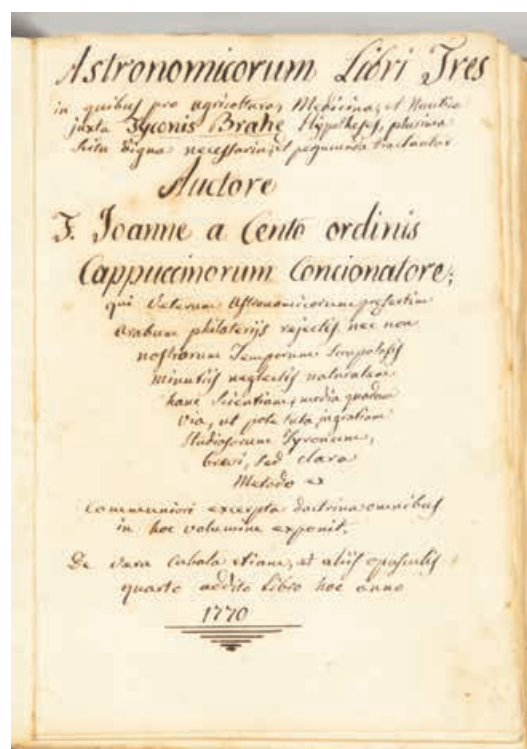 Astronomicorum Libri Tres
in quibus pro agricoltura, Medicina, et Nautica
juxta Tyconis Brahę Hypotheses, plurima
scitu digna necessaria, et perjucunda tractantur
Auctore
F. Joanne a Cento ordinis
Cappuccinorum Concionatore;
qui veterum Astronomicorum presertim
Arabum philaterijs rejectis nec non
nostrorum Temporum scrupolosis
minutiis neglectis naturalem
hanc scientiam, media quadam
via, ut pote tuta in gratiam
studiosorum Tyronum,
brevi, sed clara
Metodo ex
communiori excerpta doctrina omnibus
in hoc volumine exponit.
De vera Cabala etiam, et aliis opusculis
quarto addito Libro hoc anno
1770